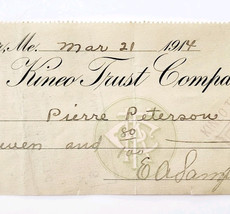 Me. Mar 21 1914
Kineo Trust Compa
Pierre Peterson
and 80/100
E A Sam